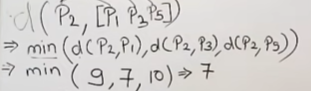 d(P2, [P1 P3 P5])
⇒ min(d(P2,P1), d(P2,P3), d(P2,P5))
⇒ min (9, 7, 10) ⇒ 7